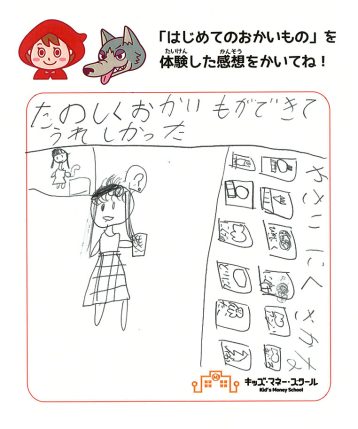 「はじめてのおかいもの」を
体験した感想をかいてね！
たいけん
かんそう
たのしくおかいものができて
うれしかった
?
やさい にく さかな
キッズ・マネー・スクール
Kid's Money School